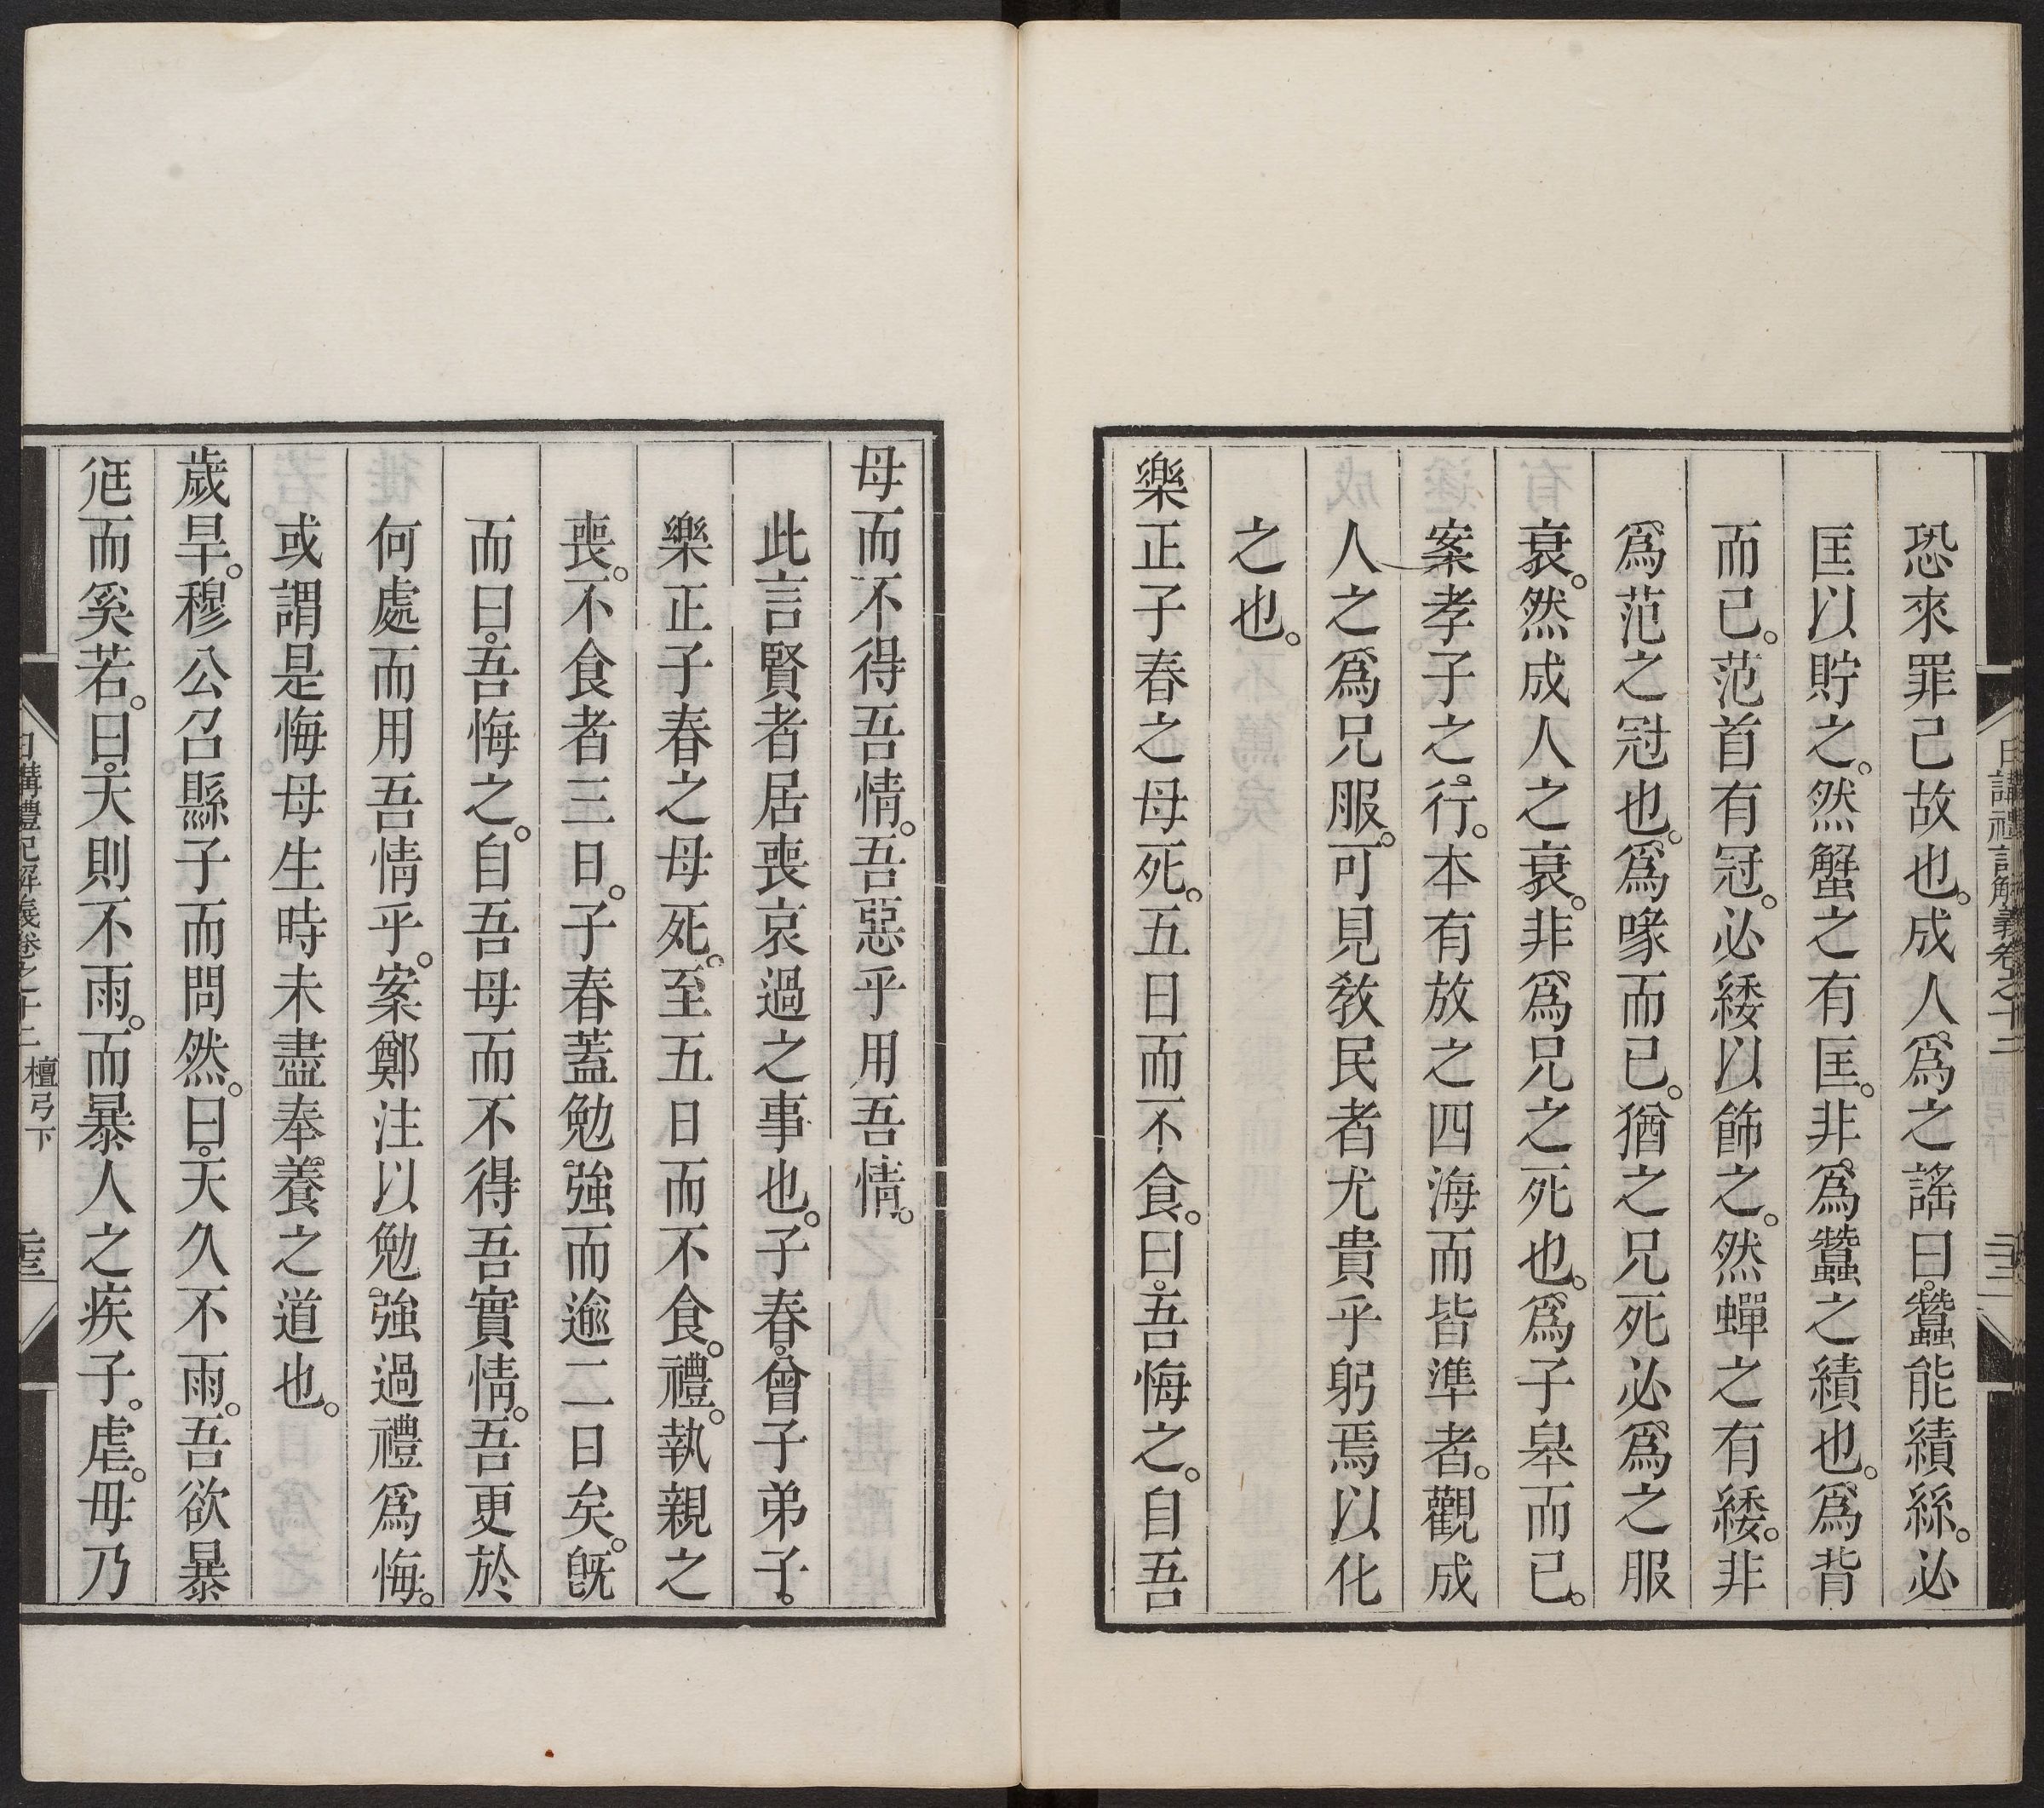 日講禮記解義卷之十二
恐來罪己故也。成人爲之謠曰。蠶能績絲。必
匡以貯之。然蟹之有匡。非爲蠶之績也。爲背
而已。范首有冠。必緌以飾之。然蟬之有緌。非
爲范之冠也。爲喙而已。猶之兄死必爲之服
衰。然成人之衰。非爲兄之死也。爲子皋而已。
案孝子之行。本有放之四海而皆準者。觀成
人之爲兄服。可見敎民者尤貴乎躬焉以化
之也。
樂正子春之母死。五日而不食。曰。吾悔之。自吾
母而不得吾情。吾惡乎用吾情。
此言賢者居喪哀過之事也。子春。曾子弟子。
樂正子春之母死。至五日而不食。禮。執親之
喪。不食者三日。子春蓋勉強而逾二日矣。旣
而曰。吾悔之。自吾母而不得吾實情。吾更於
何處而用吾情乎。案鄭注以勉強過禮爲悔。
或謂是悔母生時未盡奉養之道也。
歲旱。穆公召縣子而問然。曰。天久不雨。吾欲暴
尫而奚若。曰。天則不雨。而暴人之疾子。虐。毋乃
日講禮記解義卷之十二 檀弓下